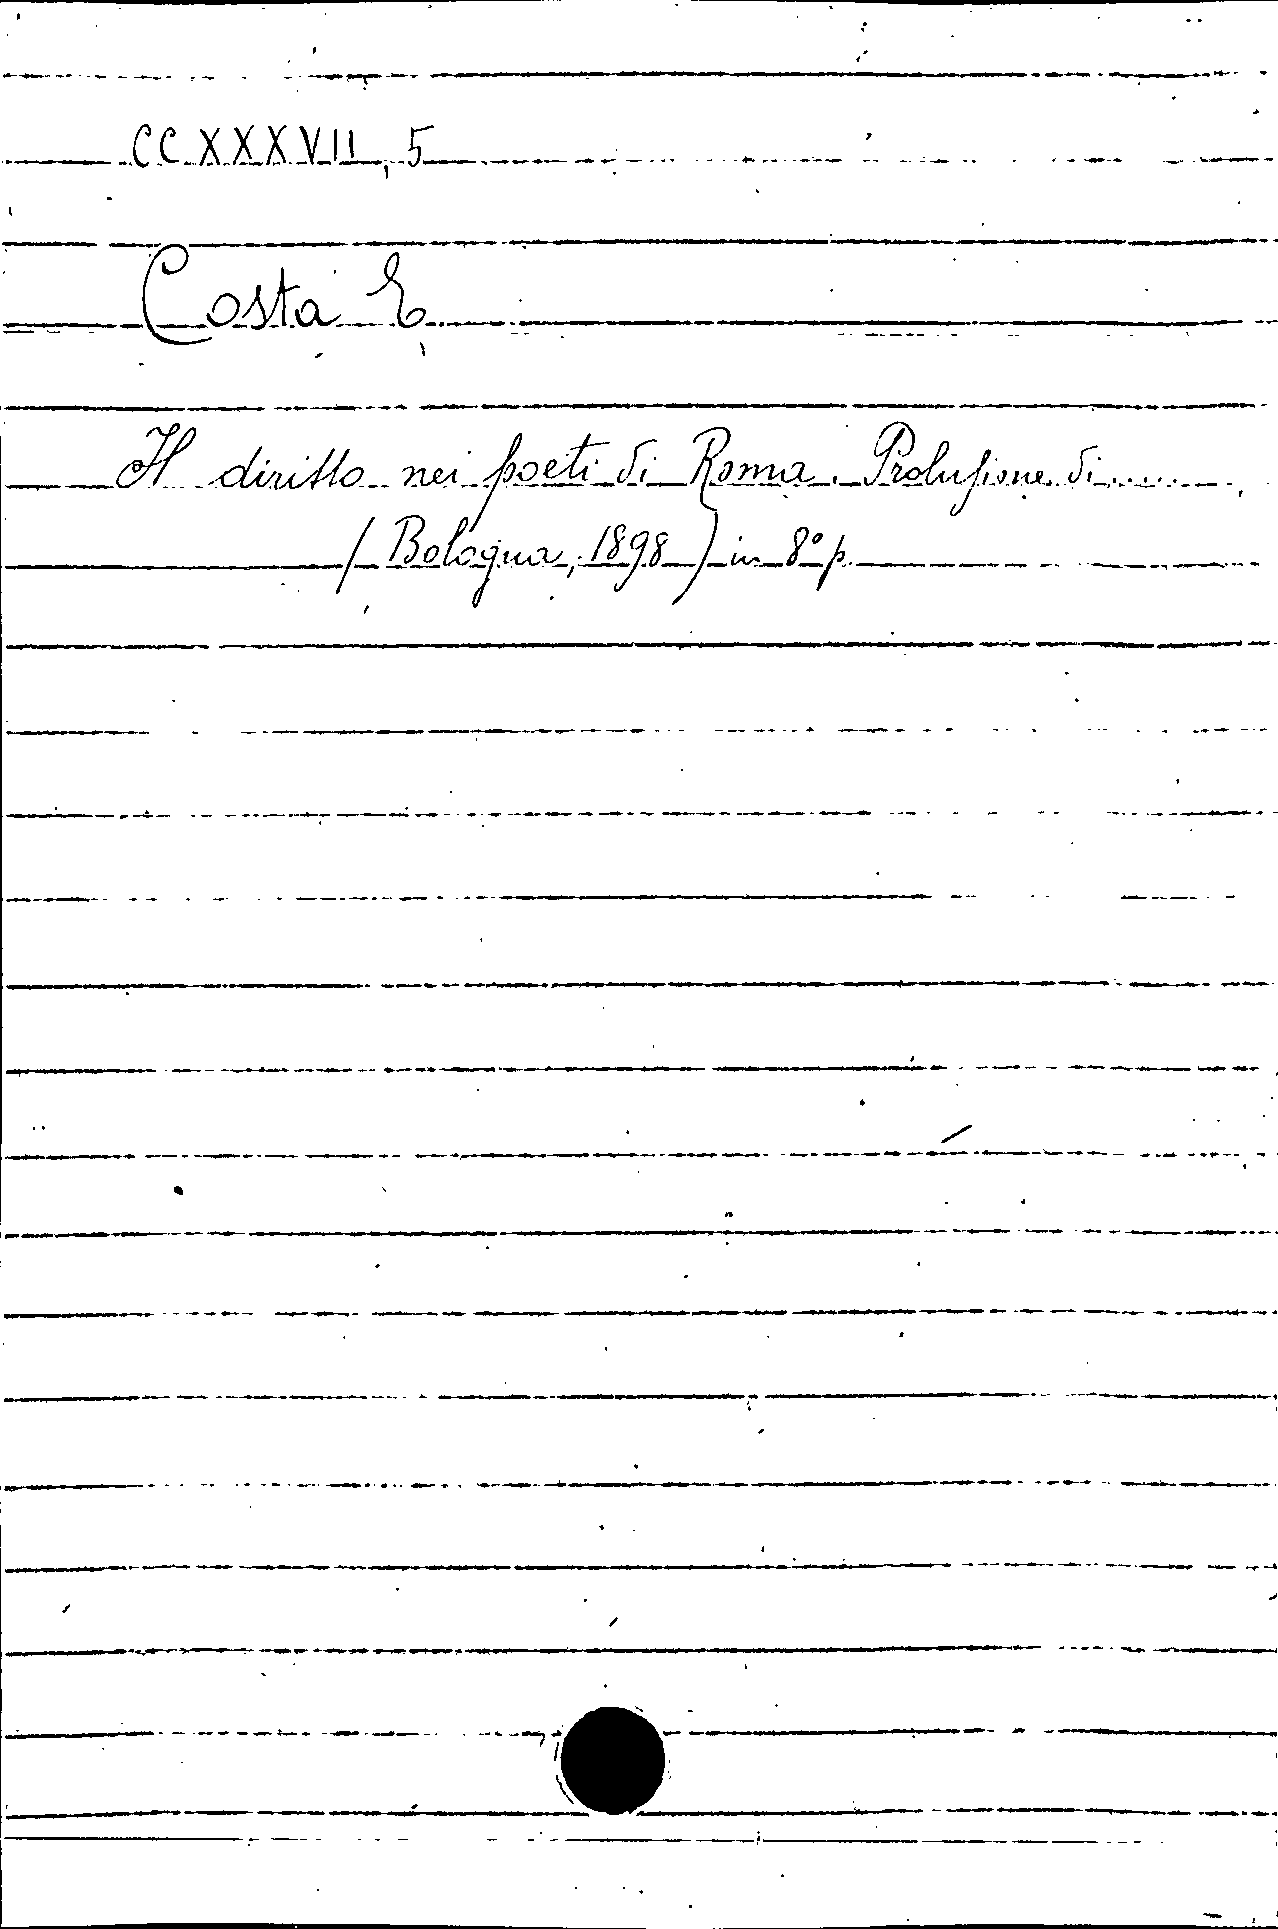 CCXXXVII, 5
Costa E
Il diritto nei poeti di Roma. Prolusione di......
(Bologna, 1898) in 8° p.